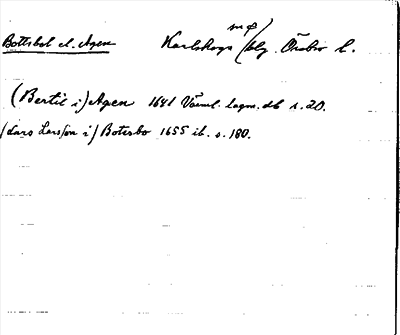 Bottsbol el. Agen Karlskoga sn Ø/blg. Örebro l.
(Bertil i) Agen 1641 Värml. lagm. db s. 20.
(Lars Larsson i) Botesbo 1655 ib. s. 180.